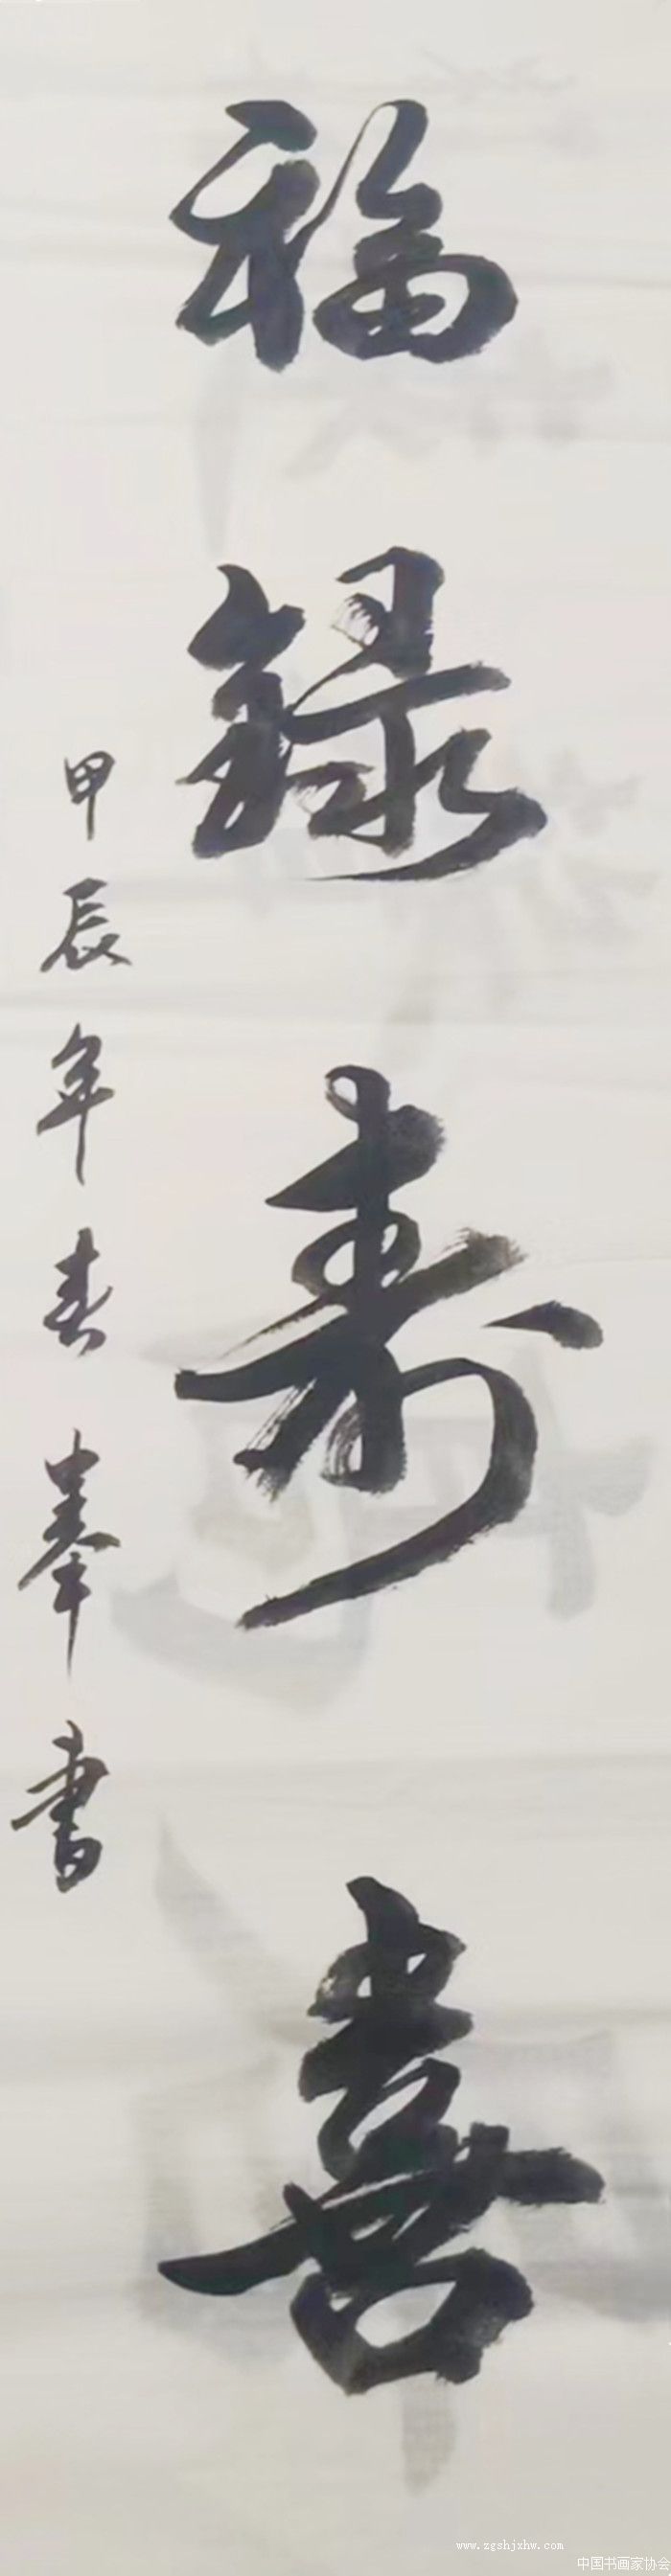 福錄寿喜
甲辰年春峯书
www.zgshjxhw.com
中国书画家协会